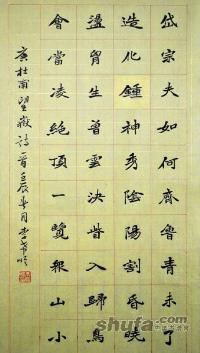 岱宗夫如何齊魯青未了
造化鍾神秀陰陽割昏曉
盪胷生曾雲決眥入歸鳥
會當凌絕頂一覽眾山小
唐杜甫望嶽詩一首壬辰
shufa.com